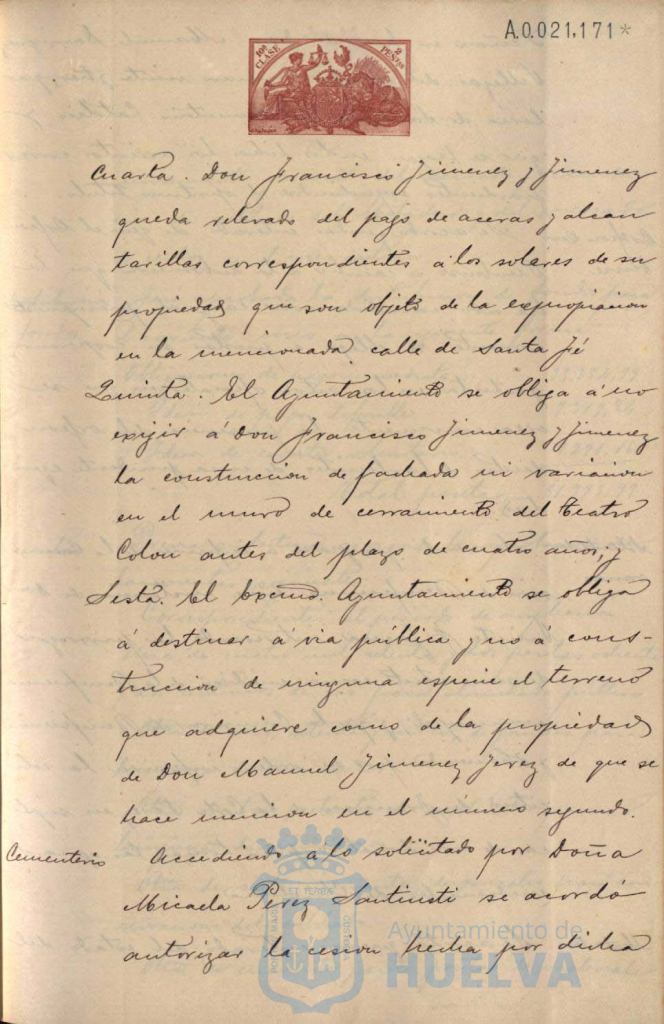 A.0.021,171*
10ª CLASE
2 PESETAS
Cuarta. Don Francisco Jimenez y Jimenez
queda relevado del pago de aceras y alcan
tarillas correspondientes á los solares de su
propiedad que son objeto de la expropiacion
en la mencionada calle de Santa Fé
Quinta. El Ayuntamiento se obliga á no
exijir á Don Francisco Jimenez y Jimenez
la construccion de fachada ni variacion
en el muro de cerramiento del Teatro
Colon antes del plazo de cuatro años; y
Sesta. El Excmo. Ayuntamiento se obliga
á destinar á via pública y no á cons-
truccion de ninguna especie el terreno
que adquiere como de la propiedad
de Don Manuel Jimenez Jerez de que se
hace mencion en el número segundo.
Cementerio Accediendo á lo solicitado por Doña
Micaela Perez Santiusti se acordó
autorizar la cesion hecha por dicha
Ayuntamiento de
HUELVA